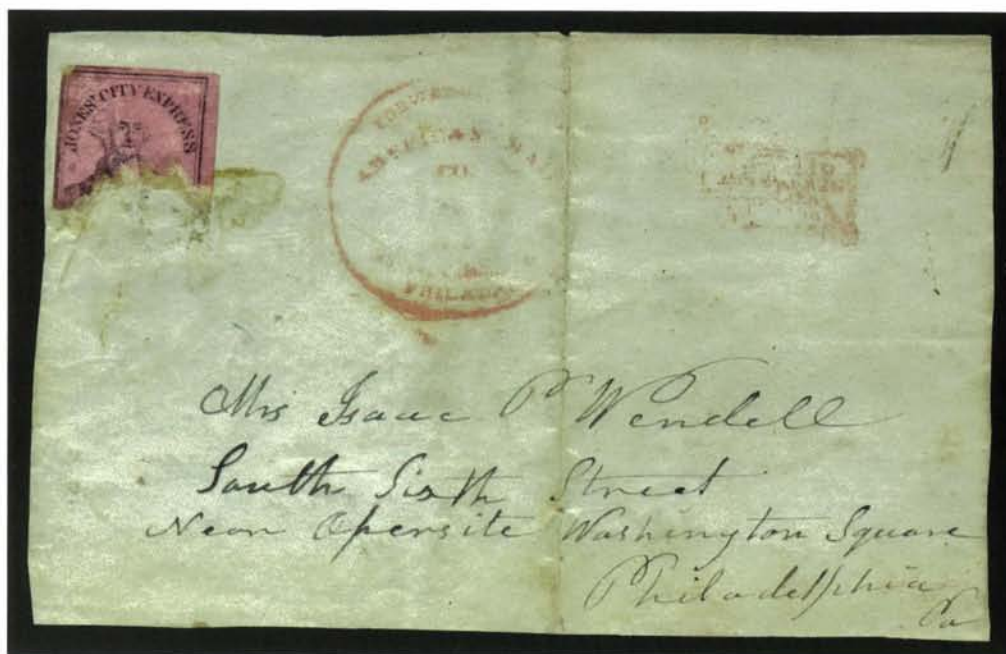 JONES' CITY EXPRESS
2
PHILADA
Mrs Isaac P Wendell
South Sixth Street
Near Opersite Washington Square
Philadelphia
Pa